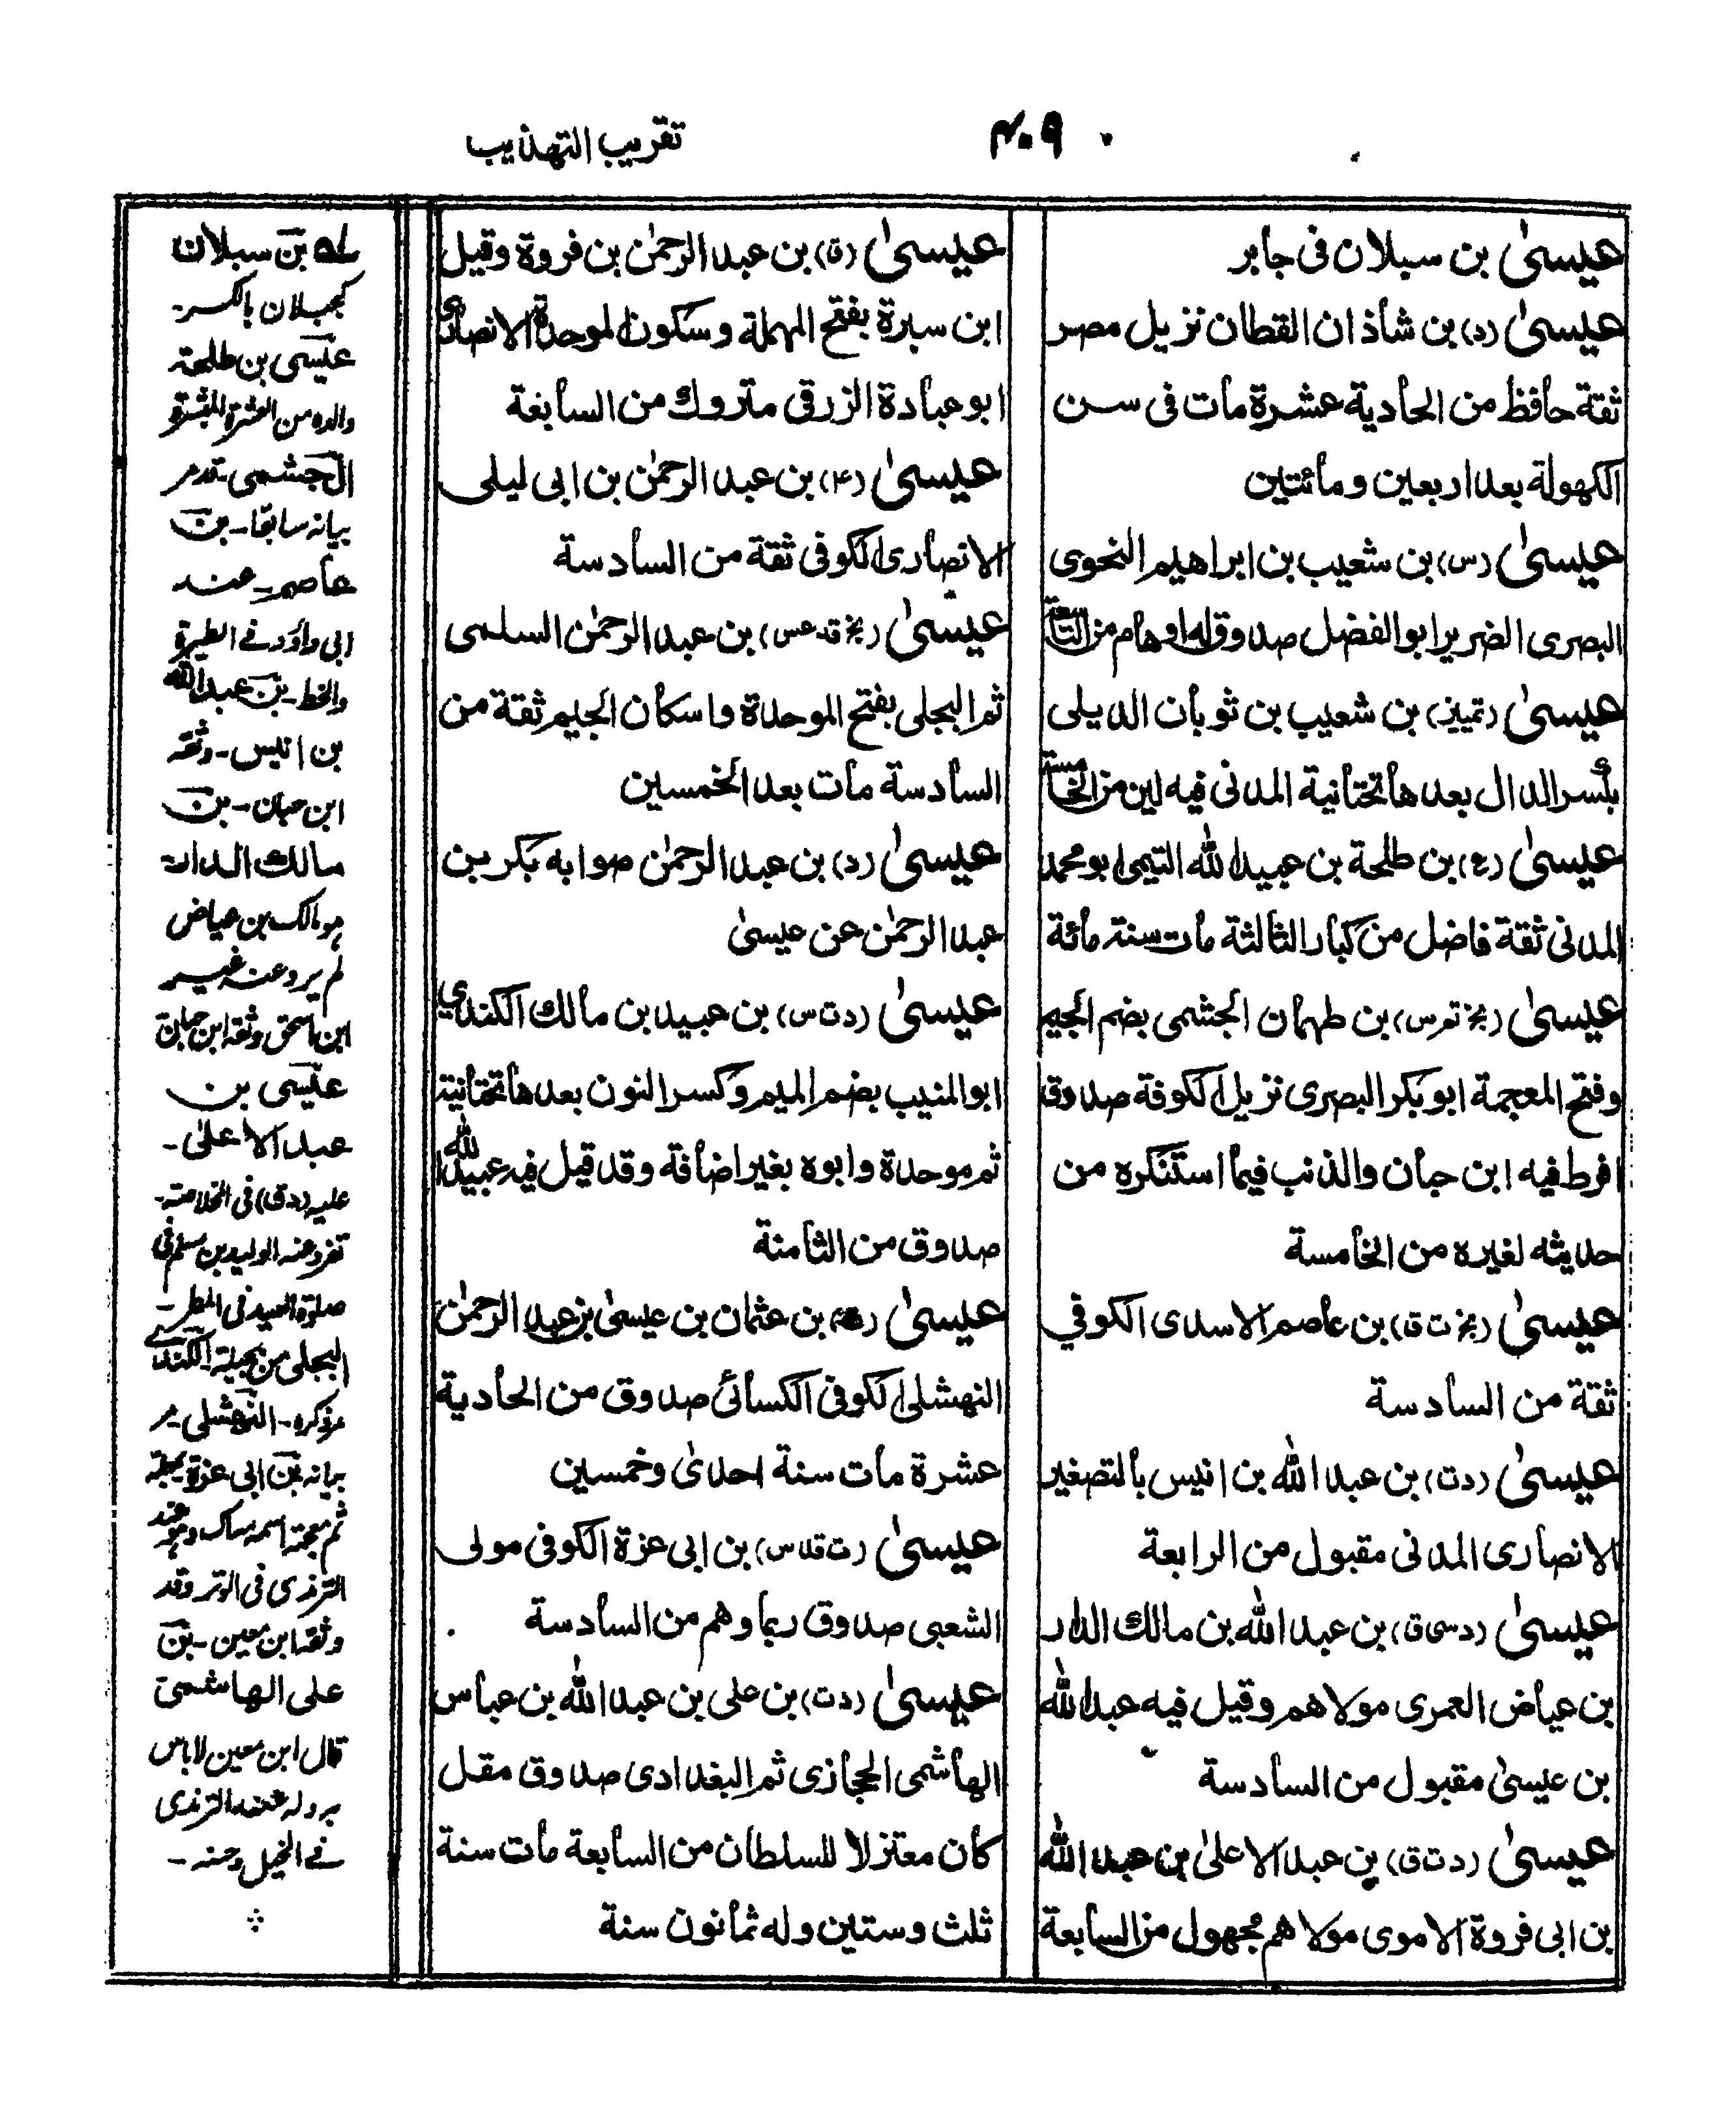 تقريب التهذيب
۴۰۹
عيسىٰ بن سبلان فى جابر
عيسىٰ (د) بن شاذان القطان نزيل مصر
ثقة حافظ من الحادية عشرة مات فى سن
الكهولة بعد اربعين ومائتين
عيسىٰ (س) بن شعيب بن ابراهيم النحوى
البصرى الضرير ابو الفضل صدوق له اوهام من التاسعة
عيسىٰ (تمييز) بن شعيب بن ثوبان الديلى
بكسر الدال بعدها تحتانية المدنى فيه لين من الخامسة
عيسىٰ (ع) بن طلحة بن عبيد الله التيمى ابو محمد
المدنى ثقة فاضل من كبار الثالثة مات سنة مائة
عيسىٰ (بخ تم س) بن طهمان الجشمى بضم الجيم
وفتح المعجمة ابو بكر البصرى نزيل الكوفة صدوق
افرط فيه ابن حبان والذنب فيما استنكره من
حديثه لغيره من الخامسة
عيسىٰ (بخ ت ق) بن عاصم الاسدى الكوفي
ثقة من السادسة
عيسىٰ (د ت) بن عبد الله بن انيس بالتصغير
الانصارى المدنى مقبول من الرابعة
عيسىٰ (د سى ق) بن عبد الله بن مالك الدار
بن عياض العمرى مولاهم وقيل فيه عبد الله
بن عيسىٰ مقبول من السادسة
عيسىٰ (د ت ق) بن عبد الاعلىٰ بن عبد الله
بن ابى فروة الاموى مولاهم مجهول من السابعة
عيسىٰ (ق) بن عبد الرحمٰن بن فروة وقيل
ابن سبرة بفتح المهملة وسكون الموحدة الانصارى
ابو عبادة الزرقى متروك من السابعة
عيسىٰ (۴) بن عبد الرحمٰن بن ابى ليلى
الانصارى الكوفى ثقة من السادسة
عيسىٰ (بخ قد عس) بن عبد الرحمٰن السلمى
ثم البجلى بفتح الموحدة واسكان الجيم ثقة من
السادسة مات بعد الخمسين
عيسىٰ (د) بن عبد الرحمٰن صوابه بكر بن
عبد الرحمٰن عن عيسىٰ
عيسىٰ (د ت س) بن عبيد بن مالك الكندي
ابو المنيب بضم الميم وكسر النون بعدها تحتانية
ثم موحدة وابوه بغير اضافة وقد قيل فيه عبيد الله
صدوق من الثامنة
عيسىٰ بن عثمان بن عيسىٰ بن عبد الرحمٰن
النهشلى الكوفى الكسائى صدوق من الحادية
عشرة مات سنة احدىٰ وخمسين
عيسىٰ (ت قد س) بن ابى عزة الكوفى مولى
الشعبى صدوق ربما وهم من السادسة
عيسىٰ (د ت) بن على بن عبد الله بن عباس
الهاشمى الحجازى ثم البغدادى صدوق مقل
كان معتزلا للسلطان من السابعة مات سنة
ثلث وستين وله ثمانون سنة
له بن سبلان
كجبلان بالكسر ـ
عيسى بن طلحة
والده من العشرة المبشرة
الجشمى ـ قد مر
بيانه سابقا ـ بن
عاصم ـ عند
ابى داؤد فى الطيرة
والخط ـ بن عبد الله
بن انيس ـ وثقه
ابن حبان ـ بن
مالك الدار
هو مالك بن عياض
لم يرو عنه غير
ابن اسحق وثقه ابن حبان
عيسى بن
عبد الاعلى ـ
عليه (د ق) فى الخلاصة ـ
تفرد عنه الوليد بن مسلم فى
صلوة العيد فى المطر ـ
البجلى من بجيلة الكندى
مر ذكره ـ النهشلى مر
بيانه بن ابى عزة بمهملة
ثم معجمة اسمه مساك وهو عند
الترمذى فى الوتر وقد
وثقه ابن معين ـ بن
على الهاشمى
قال ابن معين لا باس
به وله عند الترمذى
فى الخيل وحسنه ـ